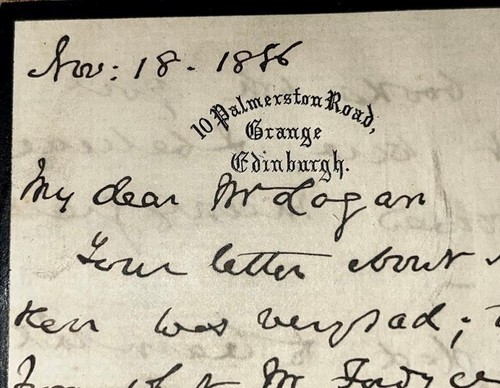 Nov: 18. 1886
10 Palmerston Road,
Grange
Edinburgh.
My dear Mr Logan
Your letter about
Kerr was very sad;
Mr